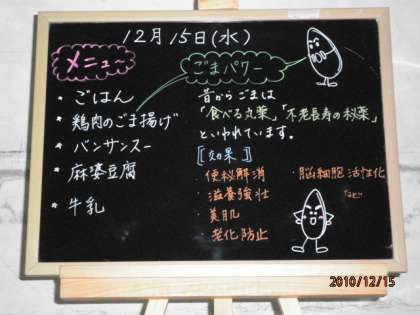 12月15日(水)
メニュー
* ごはん
* 鶏肉のごま揚げ
* バンサンスー
* 麻婆豆腐
* 牛乳
ごまパワー
昔からごまは
「食べる丸薬」「不老長寿の秘薬」
といわれています。
[効果]
・便秘解消
・滋養強壮
・美肌
・老化防止
・脳細胞活性化
など
2010/12/15